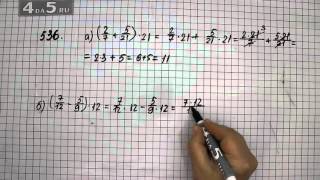 4DA5.RU
536. а) (2/7 + 5/21) · 21 = 2/7 · 21 + 5/21 · 21 = 2·21³/7 + 5·21/21 =
= 2·3 + 5 = 6+5 = 11
б) (7/12 − 5/9) · 12 = 7/12 · 12 − 5/9 · 12 = 7·12